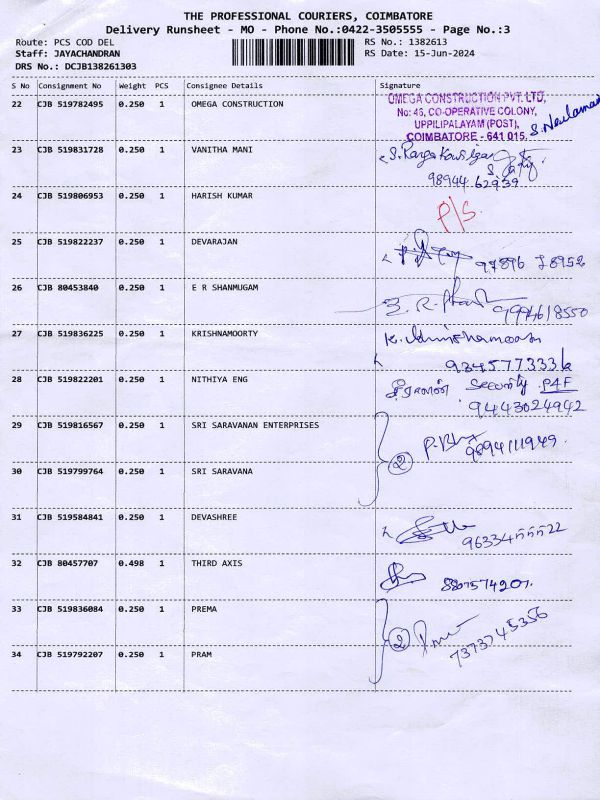 THE PROFESSIONAL COURIERS, COIMBATORE
Delivery Runsheet - MO - Phone No.:0422-3505555 - Page No.:3
Route: PCS COD DEL RS No.: 1382613
Staff: JAYACHANDRAN RS Date: 15-Jun-2024
DRS No.: DCJB138261303
S No Consignment No Weight PCS Consignee Details Signature
22 CJB 519782495 0.250 1 OMEGA CONSTRUCTION
OMEGA CONSTRUCTION PVT. LTD,
No: 46, CO-OPERATIVE COLONY,
UPPILIPALAYAM (POST),
COIMBATORE - 641 015.
23 CJB 519831728 0.250 1 VANITHA MANI
98944 62939
24 CJB 519806953 0.250 1 HARISH KUMAR
P/S.
25 CJB 519822237 0.250 1 DEVARAJAN
97896 78952
26 CJB 80453840 0.250 1 E R SHANMUGAM
9994618550
27 CJB 519836225 0.250 1 KRISHNAMOORTY
28 CJB 519822201 0.250 1 NITHIYA ENG
Security P4F
9443024942
29 CJB 519816567 0.250 1 SRI SARAVANAN ENTERPRISES
2 9894111949.
30 CJB 519799764 0.250 1 SRI SARAVANA
31 CJB 519584841 0.250 1 DEVASHREE
9633455522
32 CJB 80457707 0.498 1 THIRD AXIS
8807574207.
33 CJB 519836084 0.250 1 PREMA
2 7373745356
34 CJB 519792207 0.250 1 PRAM